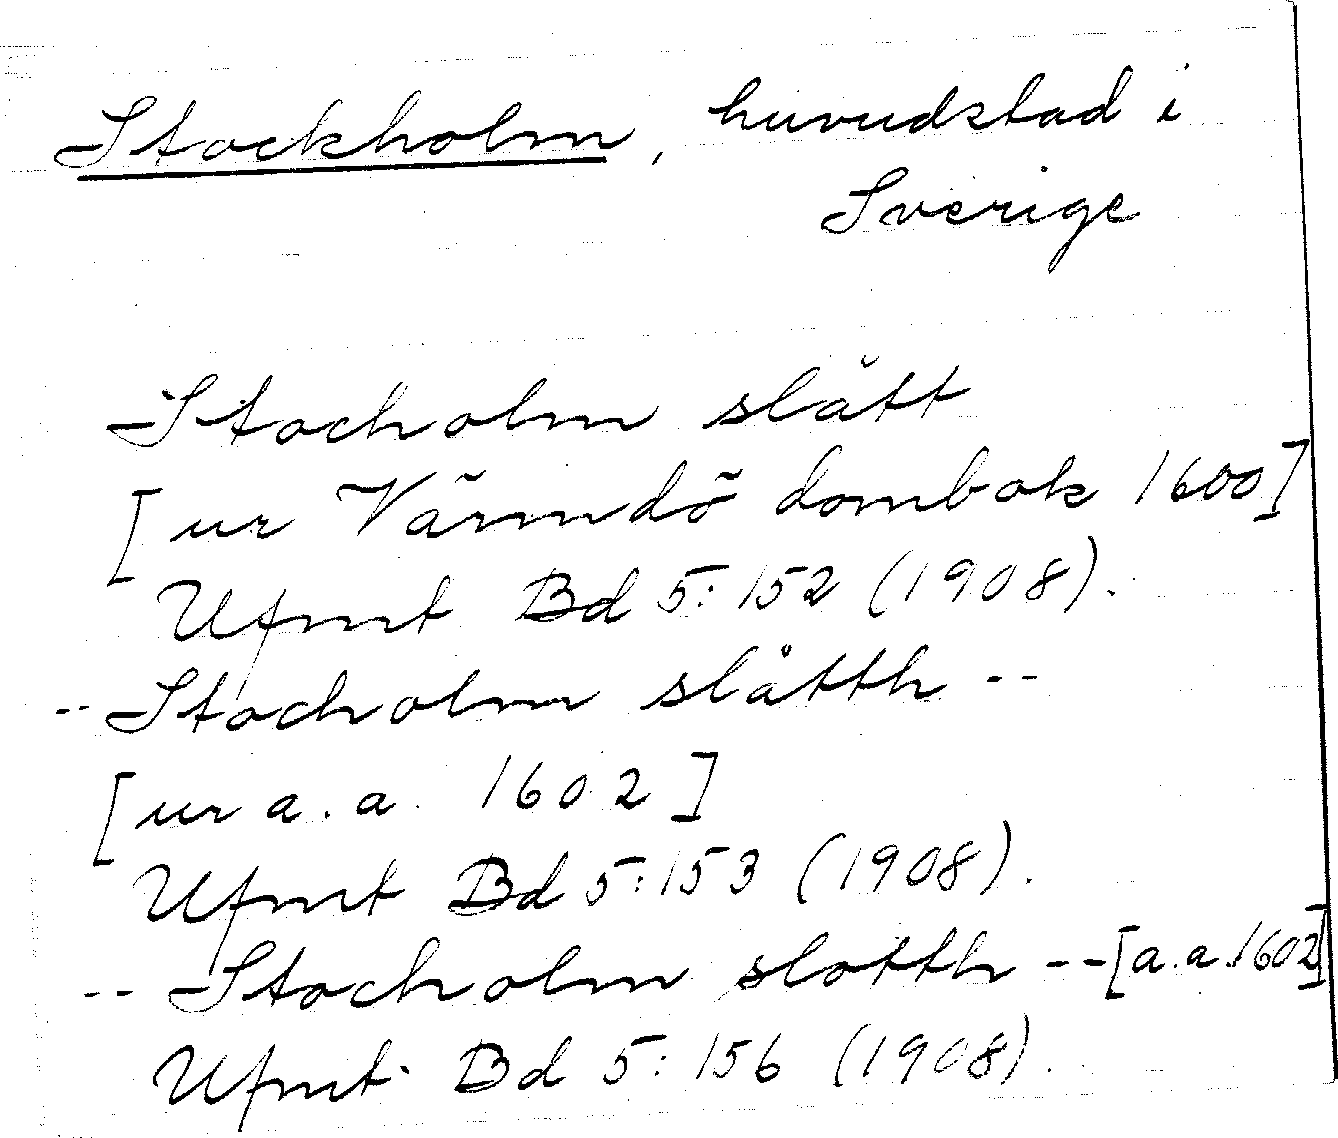 Stockholm, huvudstad i
Sverige
Stocholm slått
[ur Värmdö dombok 1600]
Ufmt Bd 5:152 (1908).
-- Stocholm slåtth --
[ur a.a. 1602]
Ufmt Bd 5:153 (1908).
-- Stocholm slotth -- [a.a. 1602]
Ufmt Bd 5:156 (1908).